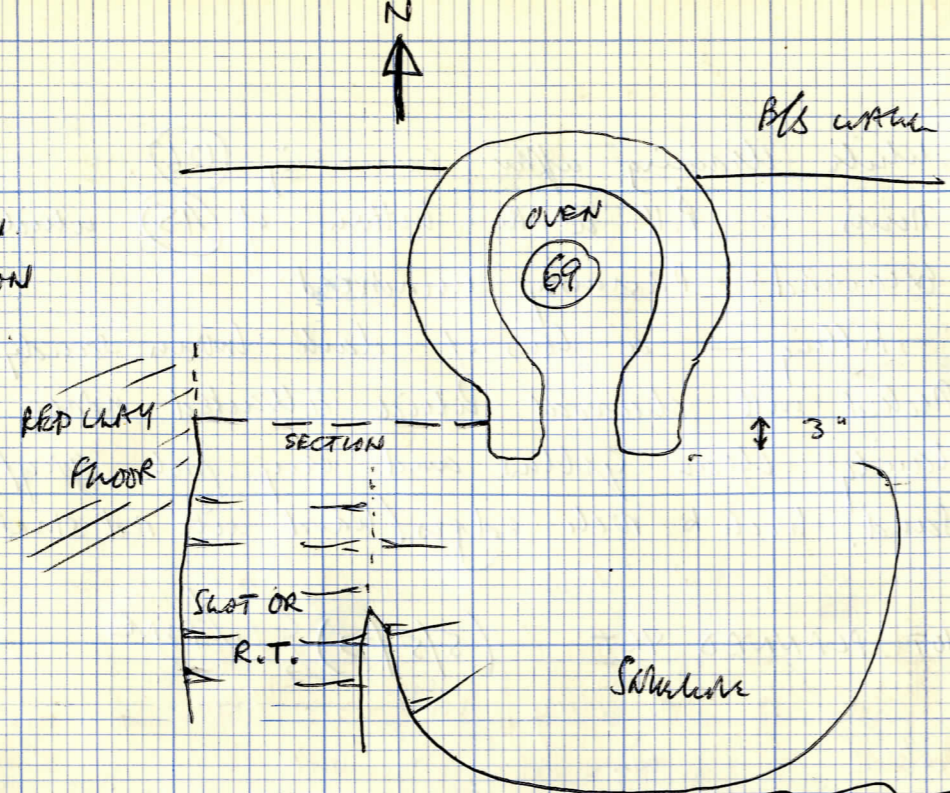 N
B/S WALL
OVEN
69
RED CLAY
FLOOR
SECTION
3"
SLOT OR
R.T.